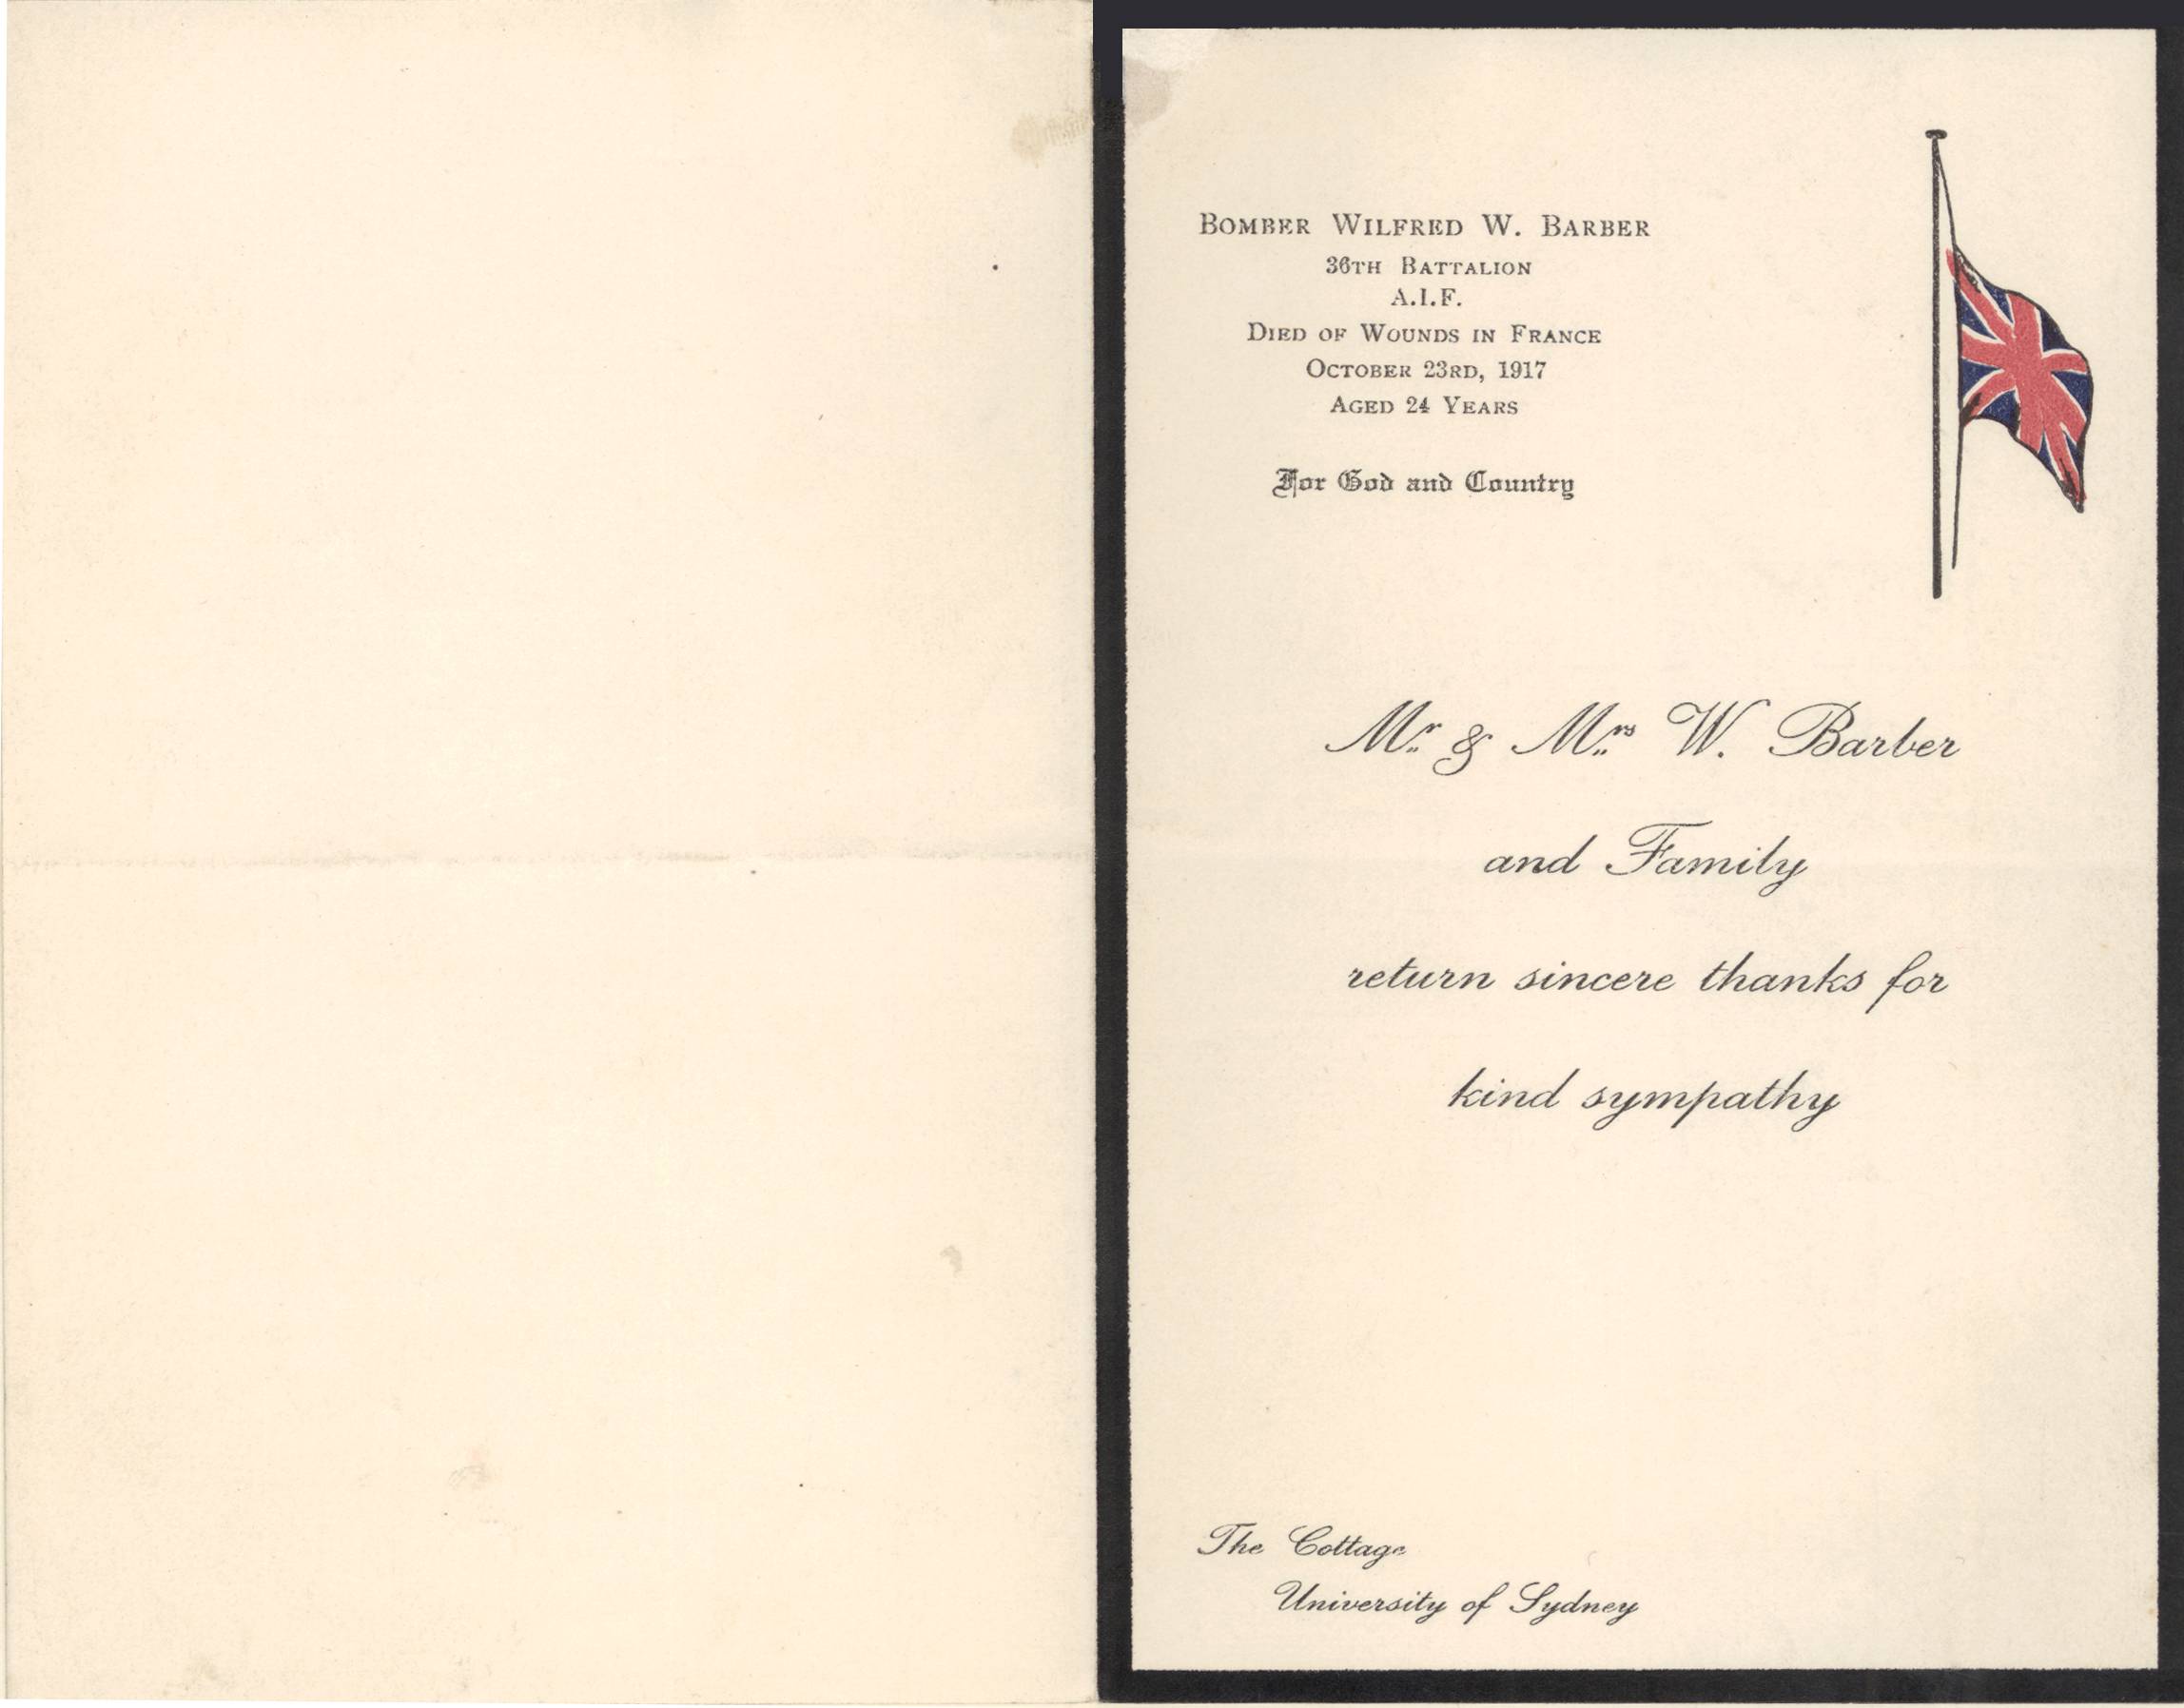 Bomber Wilfred W. Barber
36th Battalion
A.I.F.
Died of Wounds in France
October 23rd, 1917
Aged 24 Years
For God and Country
Mr. & Mrs. W. Barber
and Family
return sincere thanks for
kind sympathy
The Cottage
University of Sydney